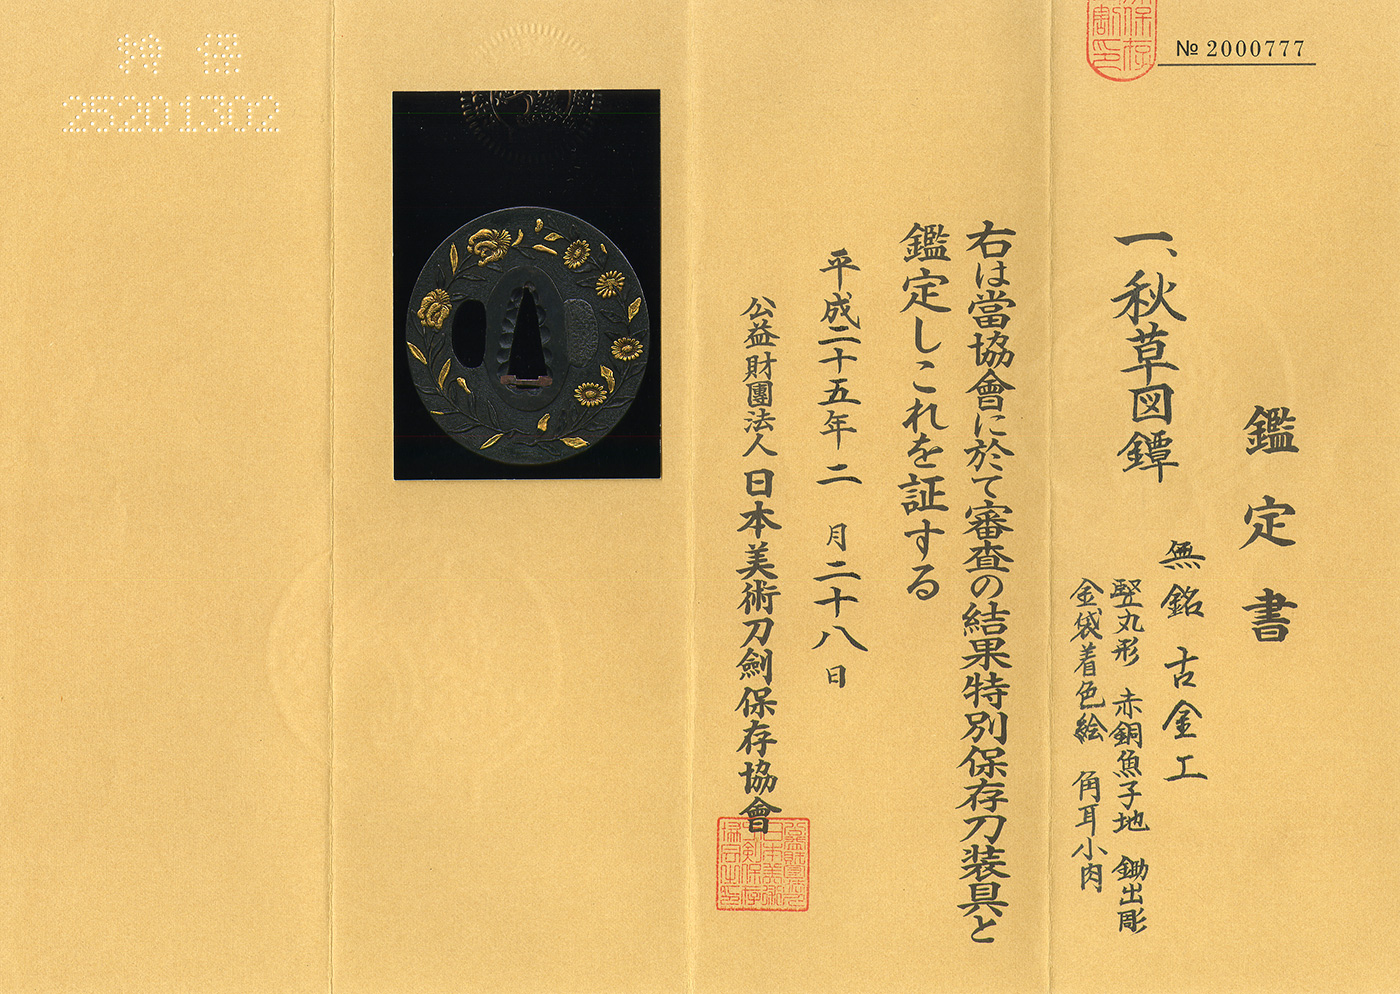 № 2000777
鑑定書
一、秋草図鐔
無銘 古金工
竪丸形 赤銅魚子地 鋤出彫
金袋着色絵 角耳小肉
右は當協會に於て審査の結果特別保存刀装具と
鑑定しこれを証する
平成二十五年二月二十八日
公益財團法人 日本美術刀劍保存協會
特保
25201302